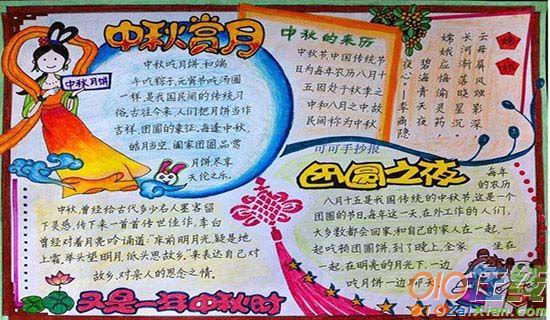 中秋赏月
中秋月饼
中秋吃月饼,和端
午吃粽子,元宵节吃汤圆
一样,是我国民间的传统习
俗,古往今来,人们把月饼当作
吉祥、团圆的象征,每逢中秋,
皓月当空,阖家团圆,品赏
月饼尽享
天伦之乐。
中秋的来历
中秋节,中国传统节
日为每年农历八月十
五因处于秋季之
中和八月之中故
民间称为中秋
嫦娥
云母屏风烛影深
长河渐落晓星沉
嫦娥应悔偷灵药
碧海青天夜
夜心—李商隐
可可手抄报
团圆之夜
每年
的农历
八月十五是我国传统的中秋节,这是一个
团圆的节日,每年这一天,在外工作的人们,
大多数都会回家,和自己的家人在一起,一
起吃顿团圆饼,到了晚上,全家坐在一
起,在明亮的月光下,一边
吃月饼一边聊天
中秋,曾经给古代多少名人墨客留
下灵感,传下来一首首传世佳作,李白
曾经对着月亮吟诵道:"床前明月光,疑是地
上霜,举头望明月,低头思故乡。"来表达自己对
故乡,对亲人的思念之情。
又是一年中秋时
010在线
010zaixian.com